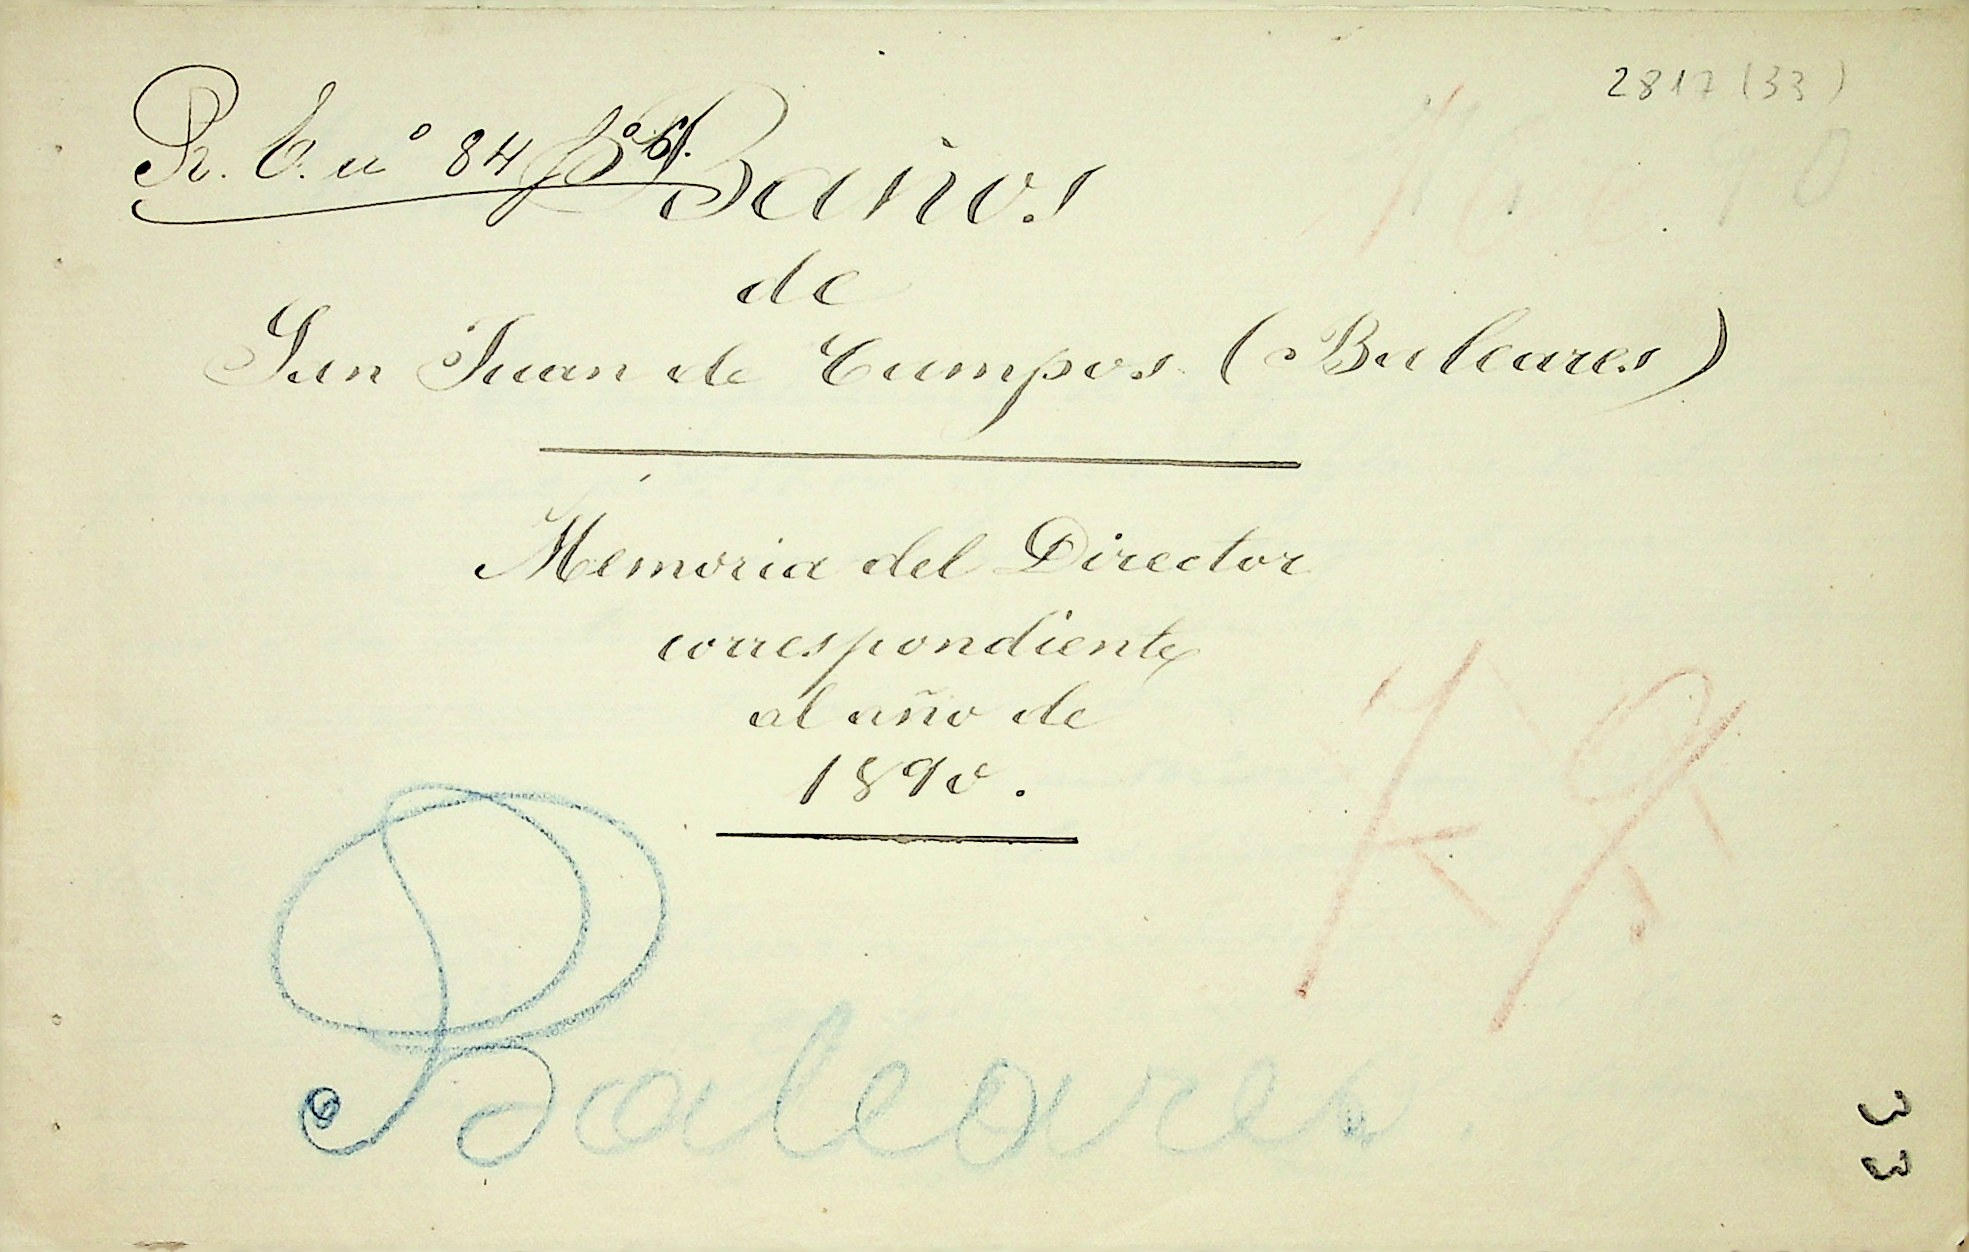 2817 (33)
R. E. nº 84
Baños
de
San Juan de Campos (Baleares)
Memoria del Director
correspondiente
al año de
1890.
Baleares.
33